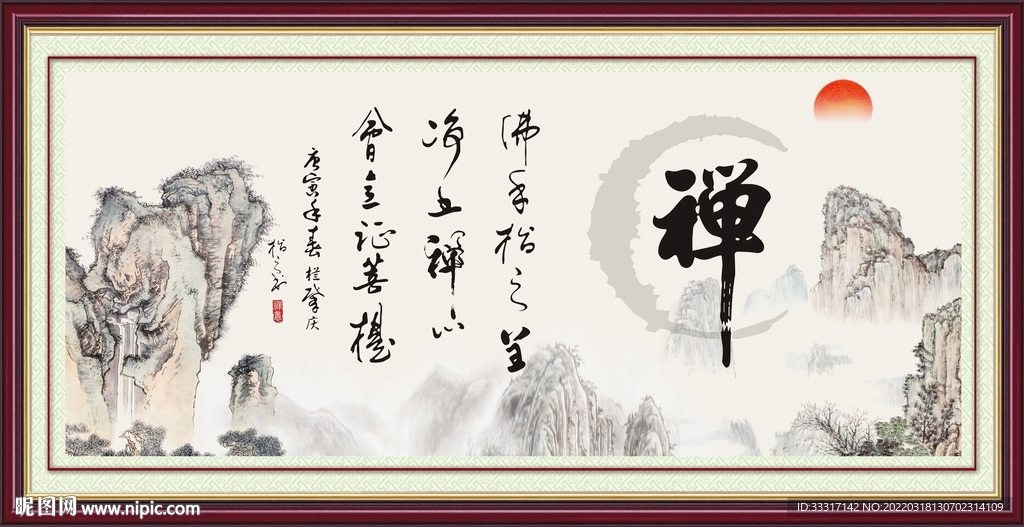 禅
佛手
净土禅心
會立证菩提
庚寅年春於肇庆
昵图网 www.nipic.com
ID:33317142 NO:20220318130702314109